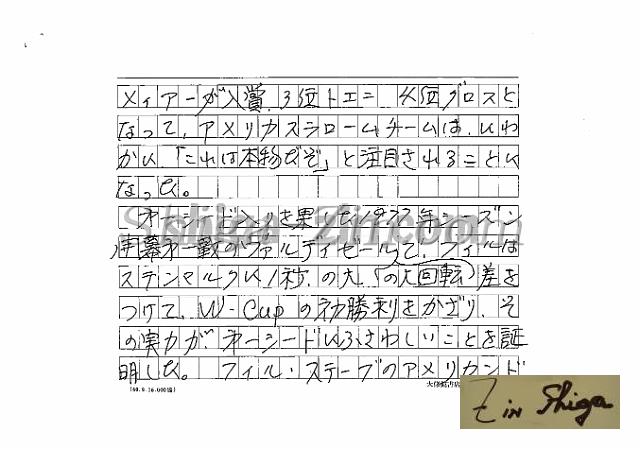 メイアーが入賞、3位トエニ 4位グロスと
なって、アメリカスラロームチームは、いわ
かい、「これは本物だぞ」と注目されることに
なった。
第一シード入りを果した1977年シーズン
開幕第一戦のヴァルディゼールで、フィルは
ステンマルクに1秒、の大(の大回転)差を
つけて、W-Cupの初勝利をかざり、そ
の実力が、第一シードにふさわしいことを証
明した。 フィル・ステーブのアメリカンド
(60.9.16,000協)
Shiga Zin.com
Z in Shiga